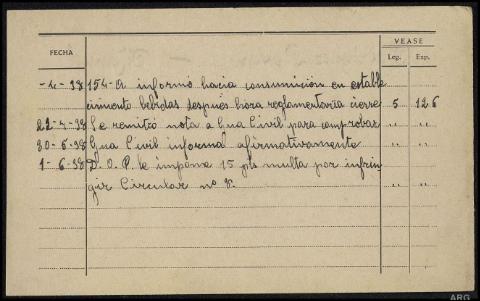 VEASE
FECHA Leg. Exp.
-4-38 154-A informó hacia consumición en estable
cimento bebidas despues hora reglamentaria cierre 5 126
22-4-38 Se remitió nota a Gua Civil para comprobar " "
30-5-38 Gua Civil informa afirmativamente " "
1-6-38 D. O. P. le impone 15 pts multa por infrin- " "
gir Circular nº 8. " "
ARG